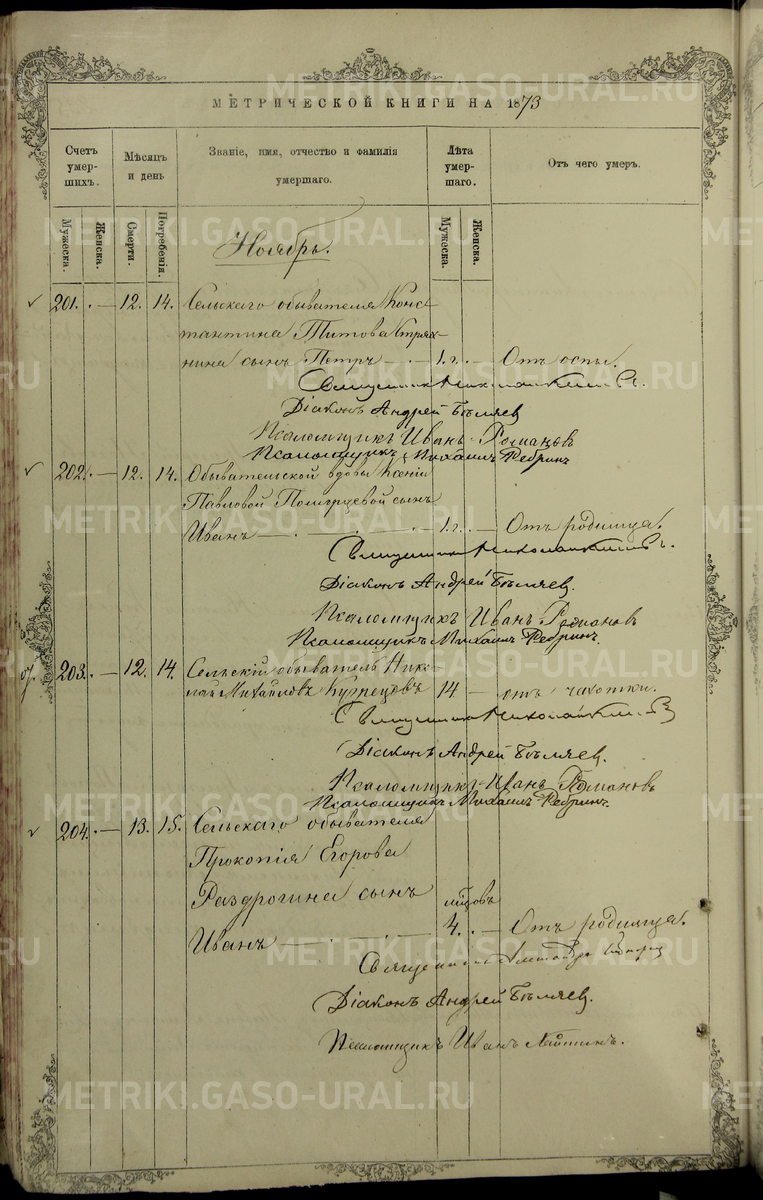 МЕТРИЧЕСКОЙ КНИГИ НА 1873
Счетъ умер- шихъ.
Мѣсяцъ и день
Званіе, имя, отчество и фамилія умершаго.
Лѣта умер- шаго.
Отъ чего умеръ.
Мужеска.
Женска.
Смерти.
Погребенія.
Мужеска.
Женска.
Ноябрь.
201. — 12. 14. Сельскаго обывателя Конс
тантина Титова
нина сынъ Петръ — 1. г. — Отъ оспы.
Священникъ
Діаконъ Андрей Бѣляев
Псаломщикъ Иванъ Романовъ
Псаломщикъ Михаилъ Ребринъ
202. — 12. 14. Обывательской вдовы Ксеніи
Павловой сынъ
Иванъ — 1. г. — Отъ родимца.
Священникъ
Діаконъ Андрей Бѣляев.
Псаломщикъ Иванъ Романовъ
Псаломщикъ Михаилъ Ребринъ.
203. — 12. 14. Сельскій обыватель Нико-
лай Михайловъ Кузнецовъ 14 — отъ чахотки.
Священникъ
Діаконъ Андрей Бѣляев.
Псаломщикъ Иванъ Романовъ
Псаломщикъ Михаилъ Ребринъ.
204. — 13. 15. Сельскаго обывателя
Прокопія Егорова
Раздрогина сынъ мѣсцовъ
Иванъ — 4. — Отъ родимца.
Священникъ
Діаконъ Андрей Бѣляев.
Псаломщикъ Иванъ
METRIKI.GASO-URAL.RU